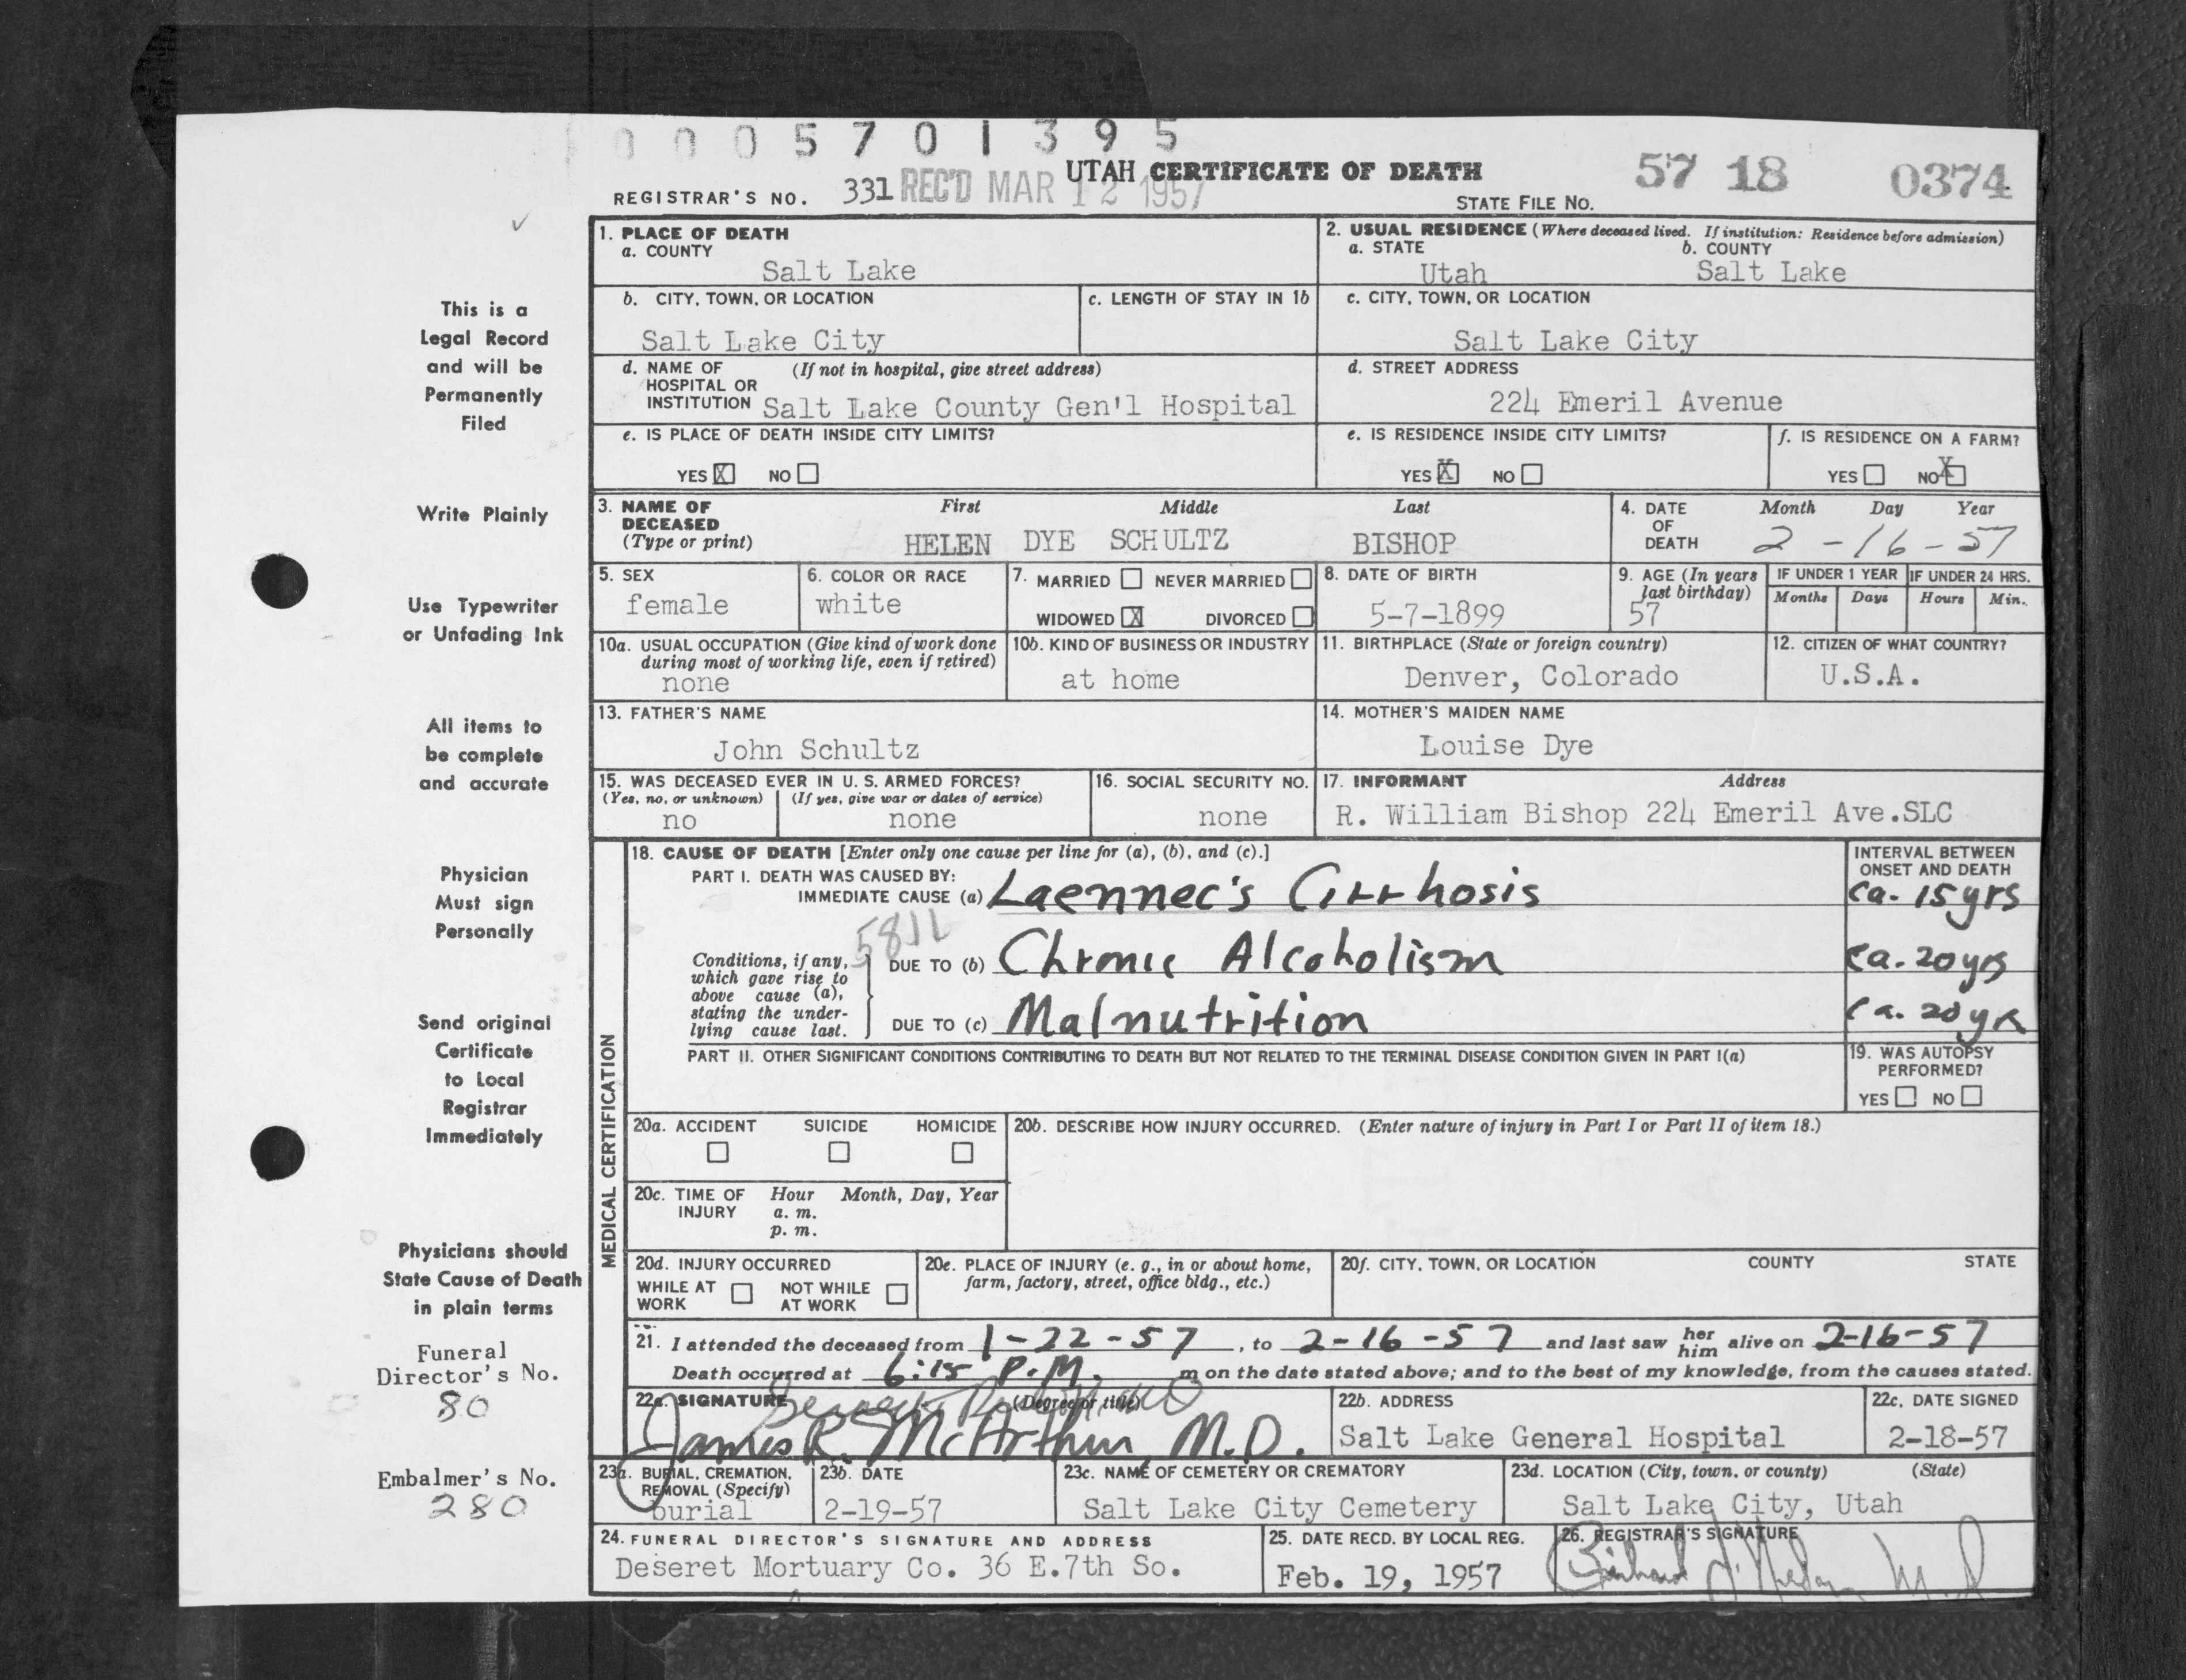 0005701395
UTAH CERTIFICATE OF DEATH
57 18 0374
REGISTRAR'S NO. 331 REC'D MAR 12 1957
STATE FILE NO.
This is a
Legal Record
and will be
Permanently
Filed
Write Plainly
Use Typewriter
or Unfading Ink
All items to
be complete
and accurate
Physician
Must sign
Personally
Send original
Certificate
to Local
Registrar
Immediately
Physicians should
State Cause of Death
in plain terms
Funeral
Director's No.
80
Embalmer's No.
280
1. PLACE OF DEATH
a. COUNTY
Salt Lake
2. USUAL RESIDENCE (Where deceased lived. If institution: Residence before admission)
a. STATE b. COUNTY
Utah Salt Lake
b. CITY, TOWN, OR LOCATION
Salt Lake City
c. LENGTH OF STAY IN 1b
c. CITY, TOWN, OR LOCATION
Salt Lake City
d. NAME OF (If not in hospital, give street address)
HOSPITAL OR
INSTITUTION Salt Lake County Gen'l Hospital
d. STREET ADDRESS
224 Emeril Avenue
e. IS PLACE OF DEATH INSIDE CITY LIMITS?
YES X NO
e. IS RESIDENCE INSIDE CITY LIMITS?
YES X NO
f. IS RESIDENCE ON A FARM?
YES NO X
3. NAME OF First Middle Last
DECEASED
(Type or print) HELEN DYE SCHULTZ BISHOP
4. DATE Month Day Year
OF
DEATH 2-16-57
5. SEX
female
6. COLOR OR RACE
white
7. MARRIED NEVER MARRIED
WIDOWED X DIVORCED
8. DATE OF BIRTH
5-7-1899
9. AGE (In years
last birthday)
57
IF UNDER 1 YEAR
Months Days
IF UNDER 24 HRS.
Hours Min.
10a. USUAL OCCUPATION (Give kind of work done
during most of working life, even if retired)
none
10b. KIND OF BUSINESS OR INDUSTRY
at home
11. BIRTHPLACE (State or foreign country)
Denver, Colorado
12. CITIZEN OF WHAT COUNTRY?
U.S.A.
13. FATHER'S NAME
John Schultz
14. MOTHER'S MAIDEN NAME
Louise Dye
15. WAS DECEASED EVER IN U. S. ARMED FORCES?
(Yes, no, or unknown) (If yes, give war or dates of service)
no none
16. SOCIAL SECURITY NO.
none
17. INFORMANT Address
R. William Bishop 224 Emeril Ave.SLC
MEDICAL CERTIFICATION
18. CAUSE OF DEATH [Enter only one cause per line for (a), (b), and (c).]
PART I. DEATH WAS CAUSED BY:
IMMEDIATE CAUSE (a) Laennec's Cirrhosis
INTERVAL BETWEEN
ONSET AND DEATH
ca. 15 yrs
5811
Conditions, if any,
which gave rise to
above cause (a),
stating the under-
lying cause last.
DUE TO (b) Chronic Alcoholism ca. 20 yrs
DUE TO (c) Malnutrition ca. 20 yrs
PART II. OTHER SIGNIFICANT CONDITIONS CONTRIBUTING TO DEATH BUT NOT RELATED TO THE TERMINAL DISEASE CONDITION GIVEN IN PART I(a)
19. WAS AUTOPSY
PERFORMED?
YES NO
20a. ACCIDENT SUICIDE HOMICIDE
20b. DESCRIBE HOW INJURY OCCURRED. (Enter nature of injury in Part I or Part II of item 18.)
20c. TIME OF Hour Month, Day, Year
INJURY a. m.
p. m.
20d. INJURY OCCURRED
WHILE AT NOT WHILE
WORK AT WORK
20e. PLACE OF INJURY (e. g., in or about home,
farm, factory, street, office bldg., etc.)
20f. CITY, TOWN, OR LOCATION COUNTY STATE
21. I attended the deceased from 1-22-57, to 2-16-57 and last saw her him alive on 2-16-57
Death occurred at 6:15 P.M. m on the date stated above; and to the best of my knowledge, from the causes stated.
22a. SIGNATURE (Degree or title)
James R. McArthur M.D.
22b. ADDRESS
Salt Lake General Hospital
22c. DATE SIGNED
2-18-57
23a. BURIAL, CREMATION,
REMOVAL (Specify)
burial
23b. DATE
2-19-57
23c. NAME OF CEMETERY OR CREMATORY
Salt Lake City Cemetery
23d. LOCATION (City, town, or county) (State)
Salt Lake City, Utah
24. FUNERAL DIRECTOR'S SIGNATURE AND ADDRESS
Deseret Mortuary Co. 36 E.7th So.
25. DATE RECD. BY LOCAL REG.
Feb. 19, 1957
26. REGISTRAR'S SIGNATURE